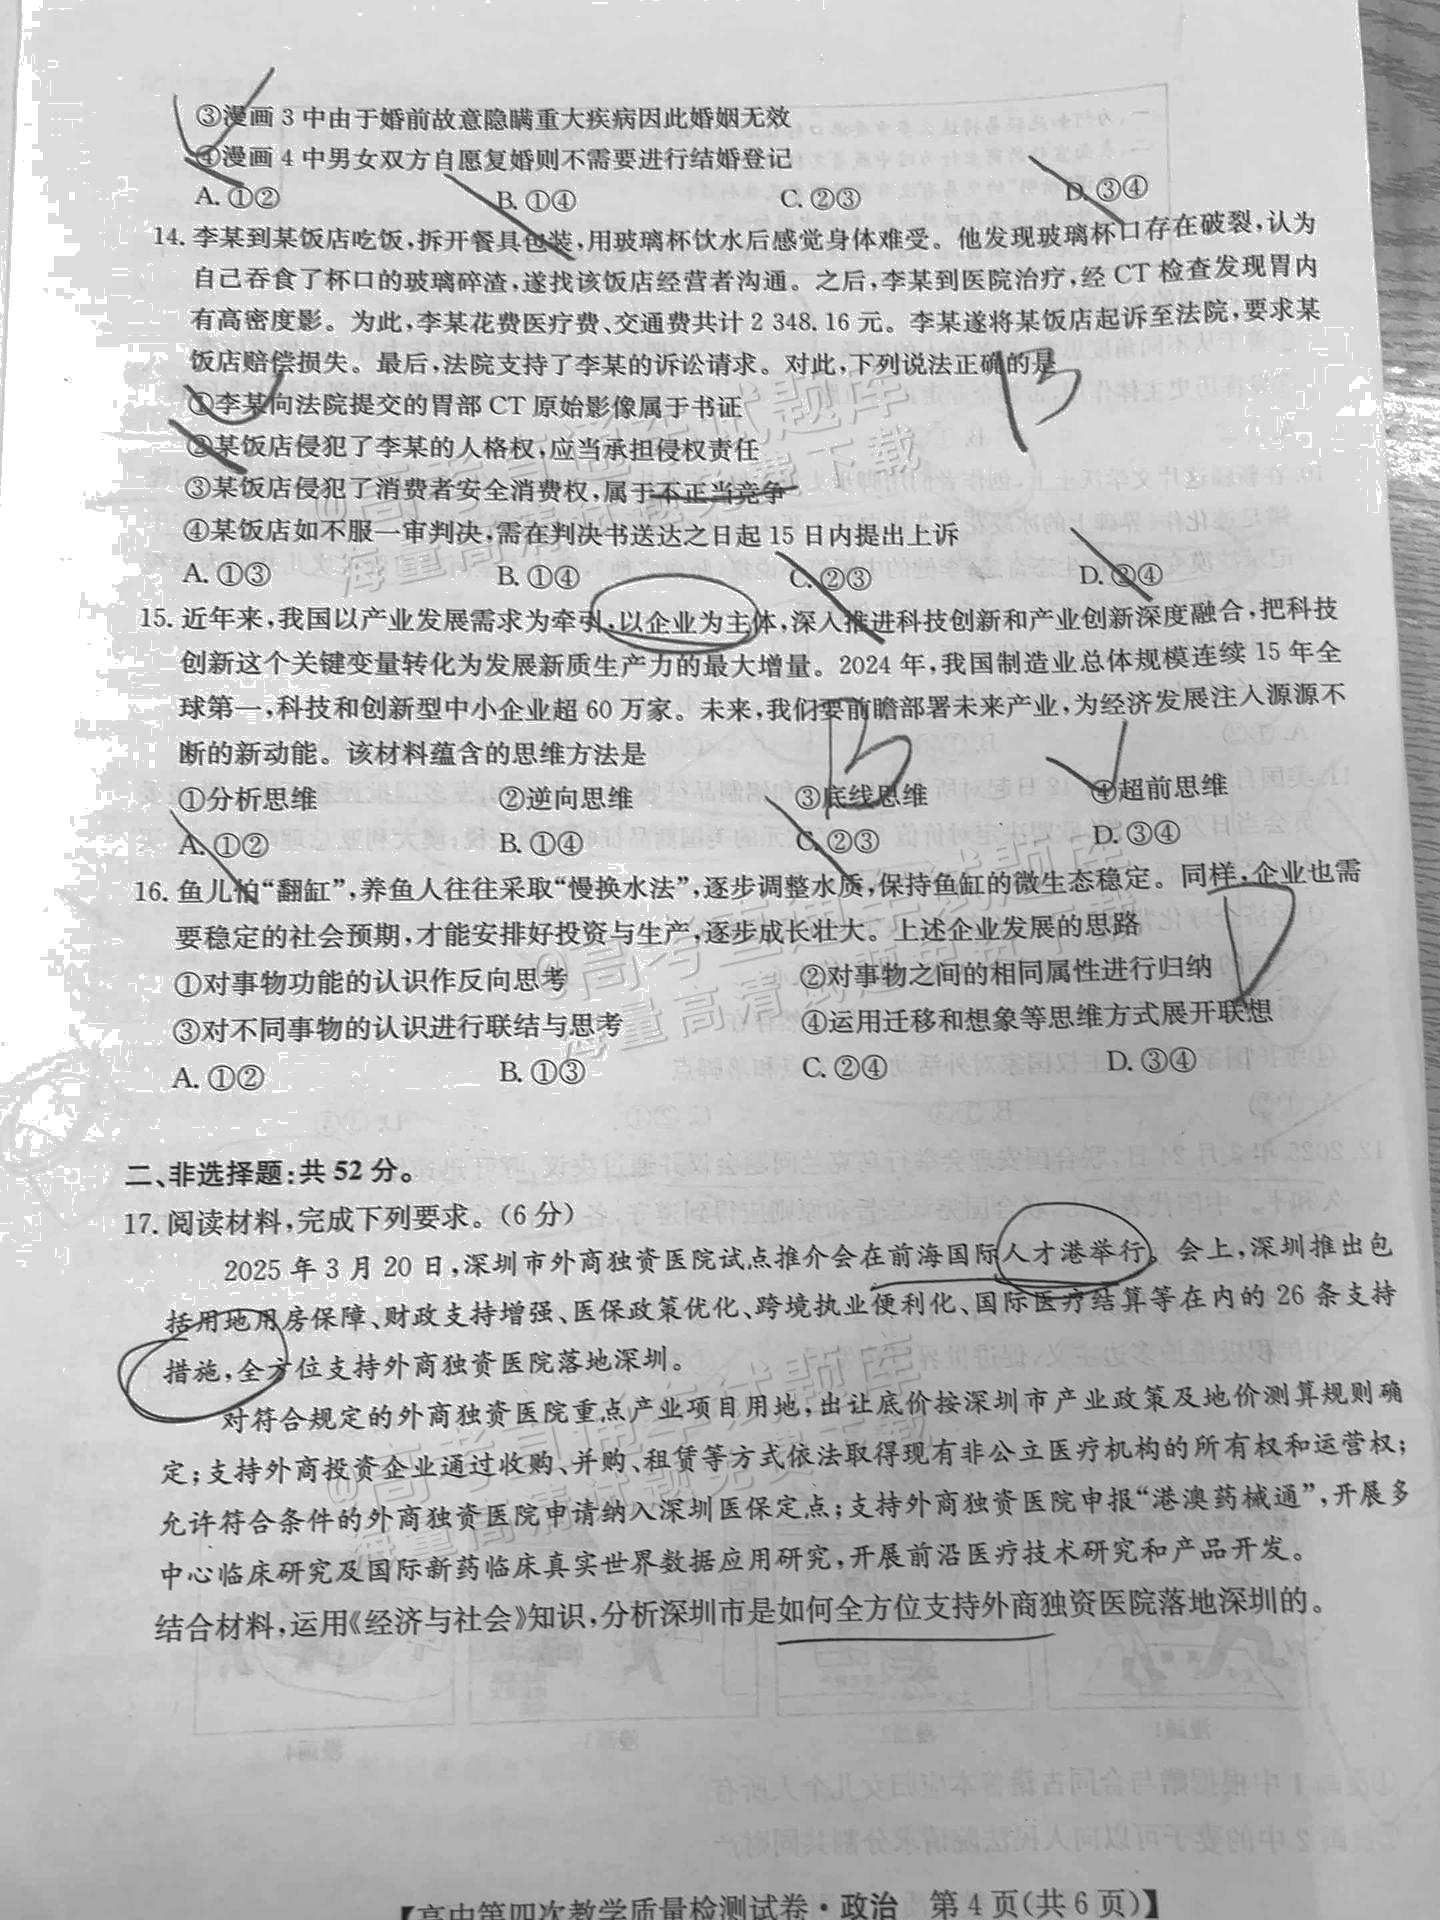 ③漫画3中由于婚前故意隐瞒重大疾病因此婚姻无效
④漫画4中男女双方自愿复婚则不需要进行结婚登记
A. ①② B. ①④ C. ②③ D. ③④
14. 李某到某饭店吃饭,拆开餐具包装,用玻璃杯饮水后感觉身体难受。他发现玻璃杯口存在破裂,认为
自己吞食了杯口的玻璃碎渣,遂找该饭店经营者沟通。之后,李某到医院治疗,经CT检查发现胃内
有高密度影。为此,李某花费医疗费、交通费共计2 348.16元。李某遂将某饭店起诉至法院,要求某
饭店赔偿损失。最后,法院支持了李某的诉讼请求。对此,下列说法正确的是
B
①李某向法院提交的胃部CT原始影像属于书证
②某饭店侵犯了李某的人格权,应当承担侵权责任
③某饭店侵犯了消费者安全消费权,属于不正当竞争
④某饭店如不服一审判决,需在判决书送达之日起15日内提出上诉
A. ①③ B. ①④ C. ②③ D. ②④
15. 近年来,我国以产业发展需求为牵引,以企业为主体,深入推进科技创新和产业创新深度融合,把科技
创新这个关键变量转化为发展新质生产力的最大增量。2024年,我国制造业总体规模连续15年全
球第一,科技和创新型中小企业超60万家。未来,我们要前瞻部署未来产业,为经济发展注入源源不
断的新动能。该材料蕴含的思维方法是
B
①分析思维 ②逆向思维 ③底线思维 ④超前思维
A. ①② B. ①④ C. ②③ D. ③④
16. 鱼儿怕“翻缸”,养鱼人往往采取“慢换水法”,逐步调整水质,保持鱼缸的微生态稳定。同样,企业也需
要稳定的社会预期,才能安排好投资与生产,逐步成长壮大。上述企业发展的思路
D
①对事物功能的认识作反向思考 ②对事物之间的相同属性进行归纳
③对不同事物的认识进行联结与思考 ④运用迁移和想象等思维方式展开联想
A. ①② B. ①③ C. ②④ D. ③④
二、非选择题:共52分。
17. 阅读材料,完成下列要求。(6分)
2025年3月20日,深圳市外商独资医院试点推介会在前海国际人才港举行。会上,深圳推出包
括用地用房保障、财政支持增强、医保政策优化、跨境执业便利化、国际医疗结算等在内的26条支持
措施,全方位支持外商独资医院落地深圳。
对符合规定的外商独资医院重点产业项目用地,出让底价按深圳市产业政策及地价测算规则确
定;支持外商投资企业通过收购、并购、租赁等方式依法取得现有非公立医疗机构的所有权和运营权;
允许符合条件的外商独资医院申请纳入深圳医保定点;支持外商独资医院申报“港澳药械通”,开展多
中心临床研究及国际新药临床真实世界数据应用研究,开展前沿医疗技术研究和产品开发。
结合材料,运用《经济与社会》知识,分析深圳市是如何全方位支持外商独资医院落地深圳的。
@高考直通车试题库
海量高清试题免费下载
@高考直通车试题库
海量高清试题免费下载
@高考直通车试题库
海量高清试题免费下载
【高中第四次教学质量检测试卷·政治 第4页(共6页)】